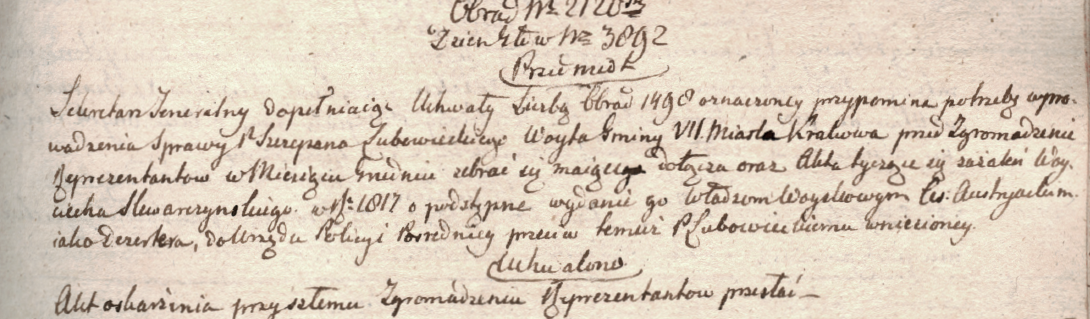 Obrad Nr 2120
Dzien: Głów Nr 3892
Przedmiot
Sekretarz Jeneralny dopełniaiąc Uchwały Liczbą Obrad 1498 oznaczoney przypomina potrzebę wpro-
wadzenia Sprawy P Szczepana Lubowieckiego Woyta Gminy VII Miasta Krakowa przed Zgromadzenie
Reprezentantow w Miesiącu Grudniu zebrać się maiącego dołącza oraz Akta tyczące się zażaleń Woy-
ciecha Slewarczynskiego w Nr 1817 o podstępne wydanie go Władzom Woyskowym Ces. Austryackim
iako Dezertera, do Urzędu Policyi Posredniey przeciw temuż P Lubowieckiemu wniesioney.
Uchwalono
Akt oskarżenia przyszłemu Zgromadzeniu Reprezentantow przesłać –